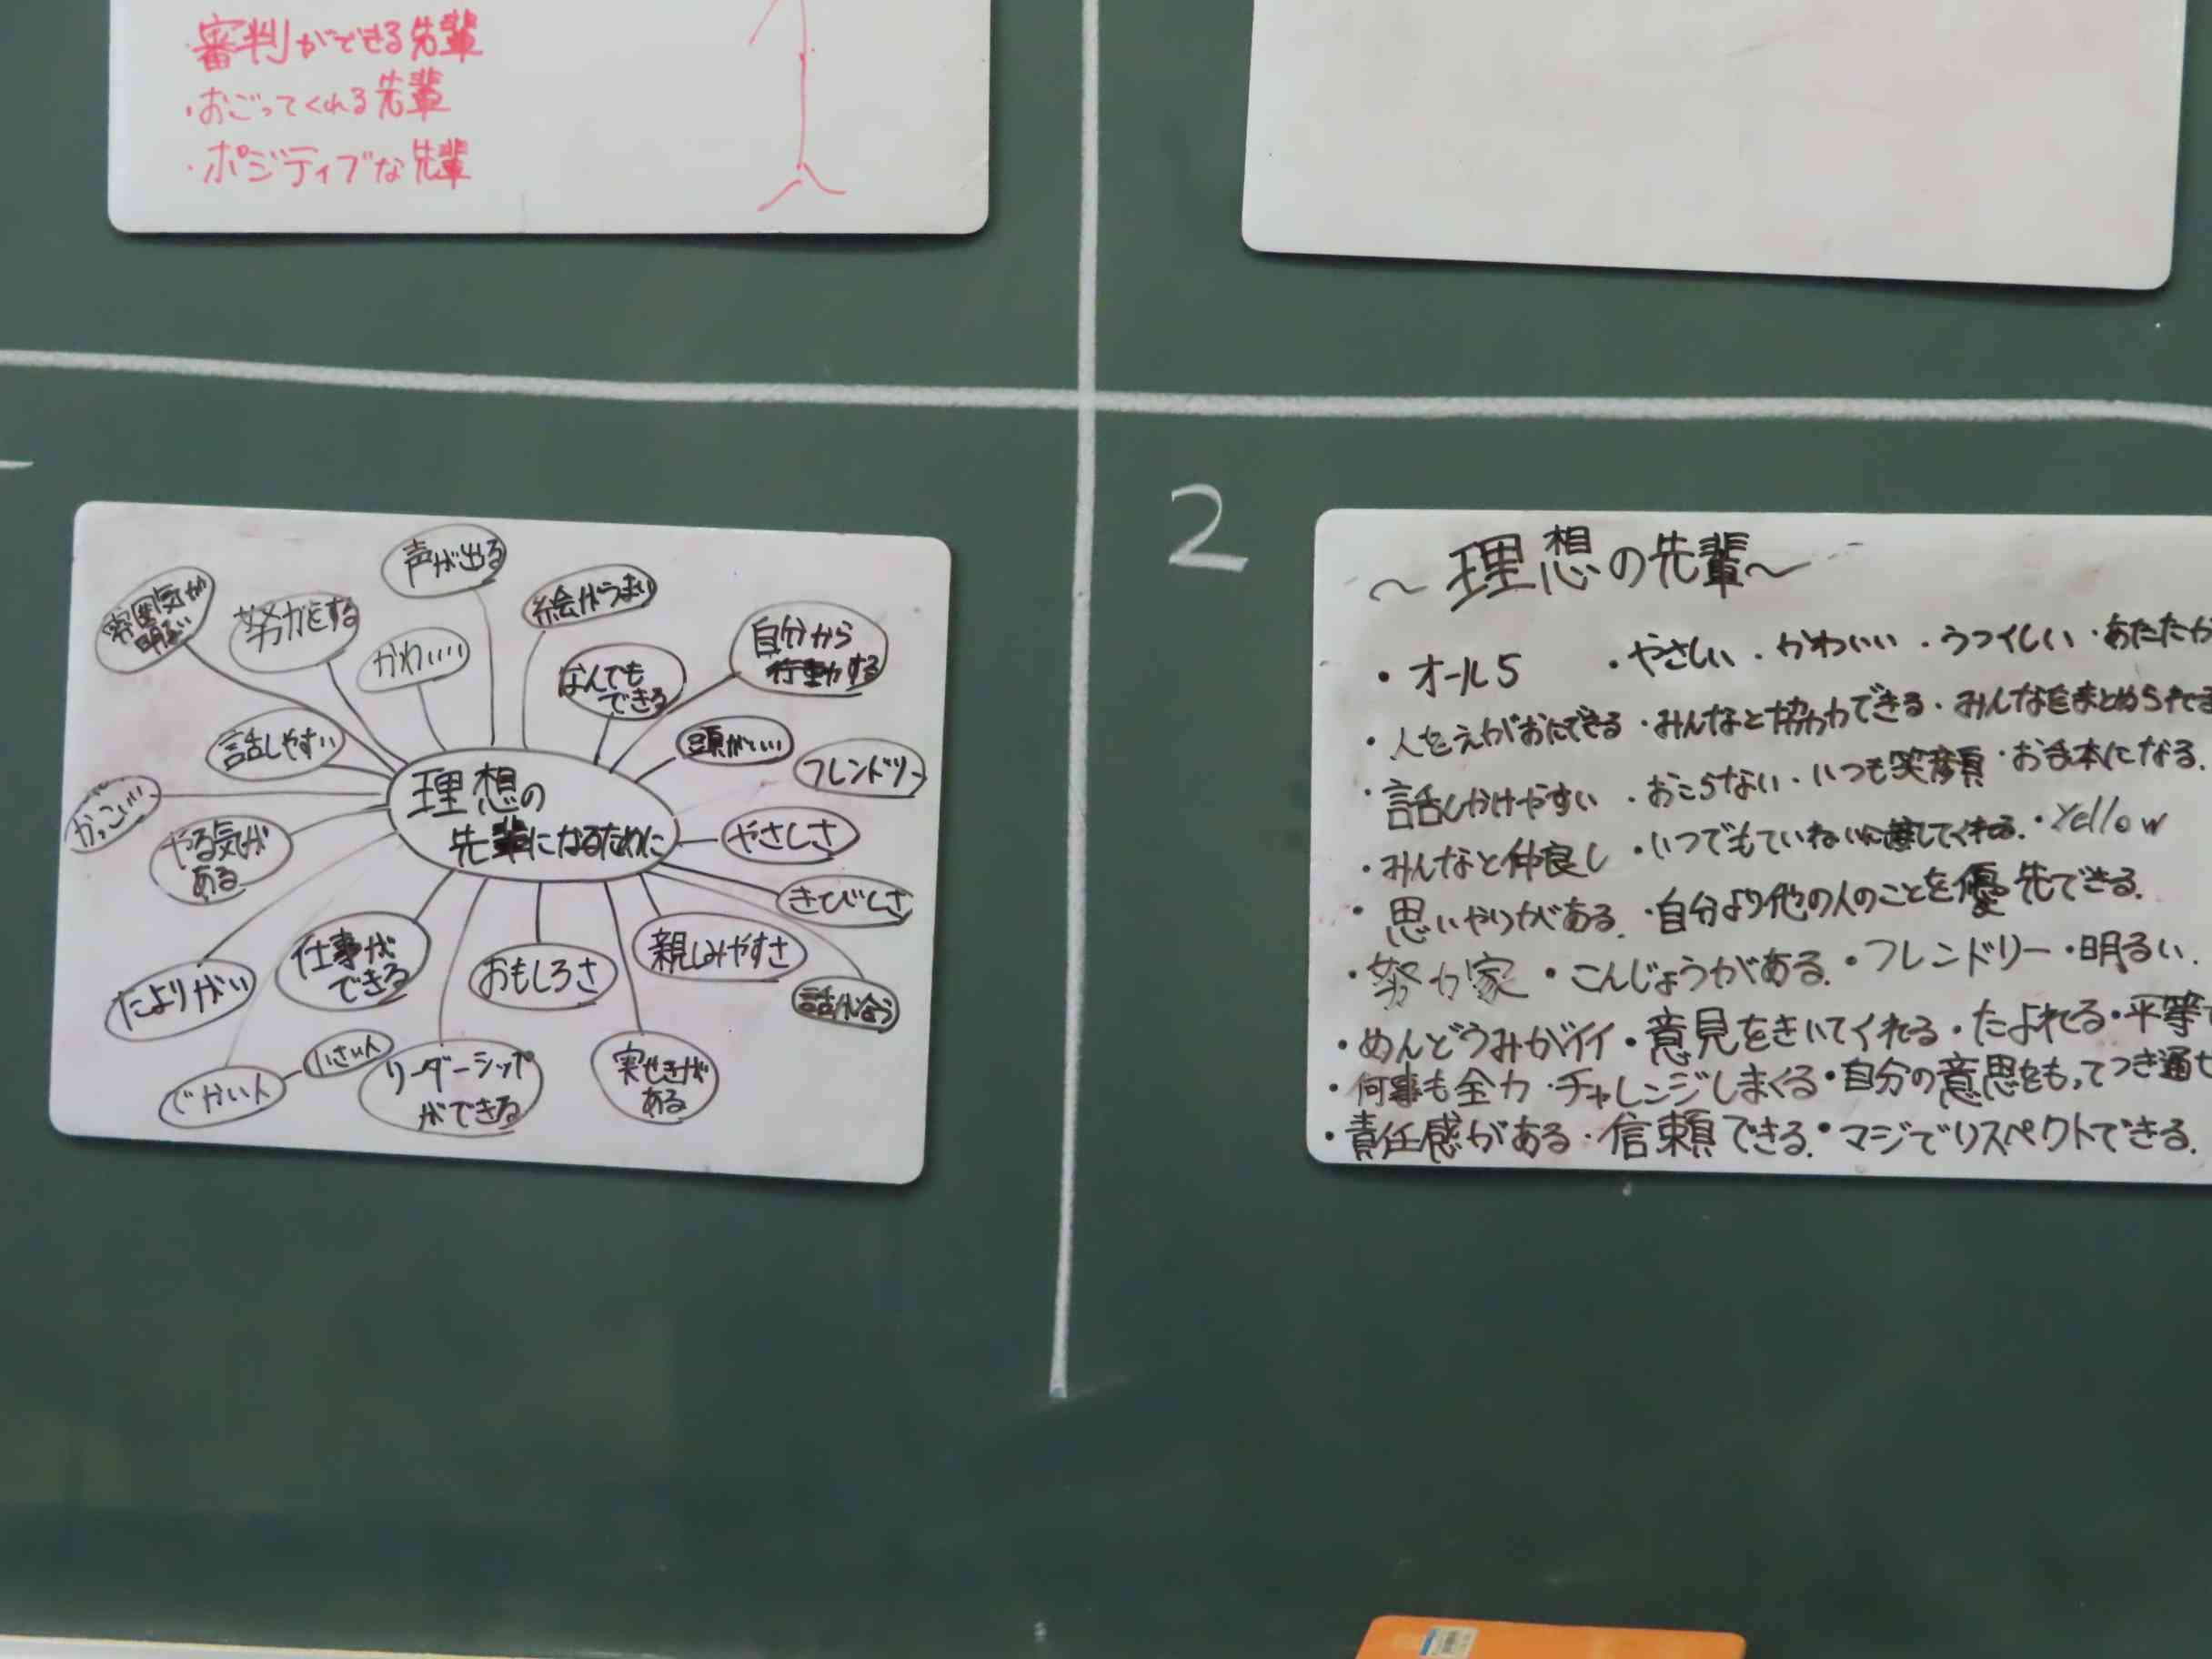 審判ができる先輩
・おごってくれる先輩
・ポジティブな先輩
雰囲気が
明るい
努力をする
声が出る
かわいい
絵がうまい
なんでも
できる
自分から
行動する
話しやすい
頭がいい
フレンドリー
かっこいい
やる気が
ある
理想の
先輩になるために
やさしさ
きびしさ
たよりがい
仕事が
できる
おもしろさ
親しみやすさ
話し合う
でかい人
小さい人
リーダーシップ
ができる
実せきが
ある
2
～理想の先輩～
・オール5 ・やさしい・かわいい・うつくしい・あたたか
・人をえがおにできる・みんなと協力できる・みんなをまとめられる
・話しかけやすい・おこらない・いつも笑顔・お手本になる.
・みんなと仲良し・いつでもていねいに接してくれる.・Yellow
・思いやりがある.・自分より他の人のことを優先できる.
・努力家・こんじょうがある.・フレンドリー・明るい.
・めんどうみがイイ・意見をきいてくれる・たよれる・平等
・何事も全力・チャレンジしまくる・自分の意思をもってつき通せ
・責任感がある・信頼できる.・マジでリスペクトできる.